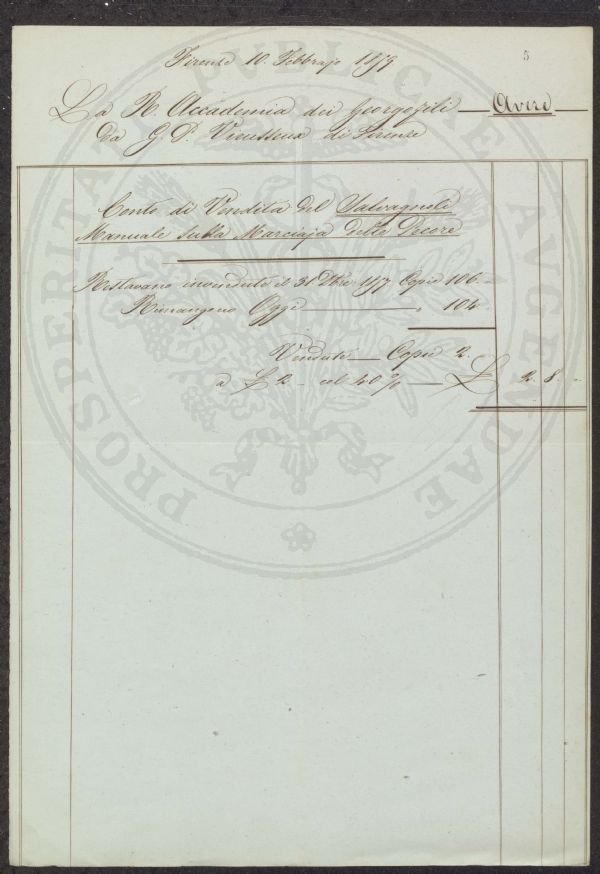 5
Firenze 10. Febbrajo
La R. Accademia dei Georgofili — Avere —
Da G. P. Vieusseux di Firenze
Conto di Vendita del Salvagnoli
Manuale sulla Marciaja delle Pecore
Restavano invendute il 31 Xbre Copie 106. —
Rimangono Oggi — " 104.
Vendute — Copie 2.
a £ 2 — col 40 % — £ 2. 8. -
PROSPERITATI PUBLICAE AUGENDAE